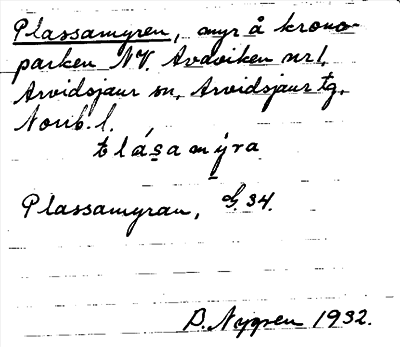 Plassamyren, myr å krono-
parken NV. Avaviken nr 1,
Arvidsjaur sn, Arvidsjaur tg,
Norrb. l.
tlásamýra
Plassamyran, G. 34.
B. Nygren 1932.